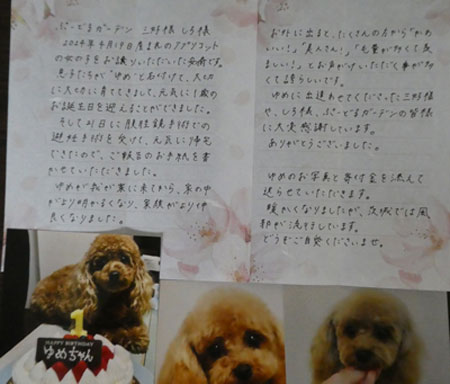 ぷーどるガーデン 三好様 しろ様
2024年4月19日産まれのアプリコット
の女の子をお譲りいただいた安齋です。
息子たちが「ゆめ」と名付けて、大切
に大切に育ててきまして、元気に1歳の
お誕生日を迎えることができました。
そして21日に腹腔鏡手術での
避妊手術を受けて、元気に帰宅
できたので、ご報告のお手紙を書
かせていただきました。
ゆめが我が家に来てから、家の中
がより明かるくなり、家族がより仲
良くなりました。
お外に出ると、たくさんの方から「かわ
いい!」「美人さん!」「毛量が多くて羨
ましい!」とお声がけいただく事が多
くて誇らしいです。
ゆめに出逢わせてくださった三好様
や、しろ様、ぷーどるガーデンの皆様
に大変感謝しています。
ありがとうございました。
ゆめのお写真と寄付金を添えて
送らせていただきます。
暖かくなりましたが、茨城では風
邪が流行しています。
どうぞご自愛くださいませ。
1
HAPPY BIRTHDAY
ゆめちゃん